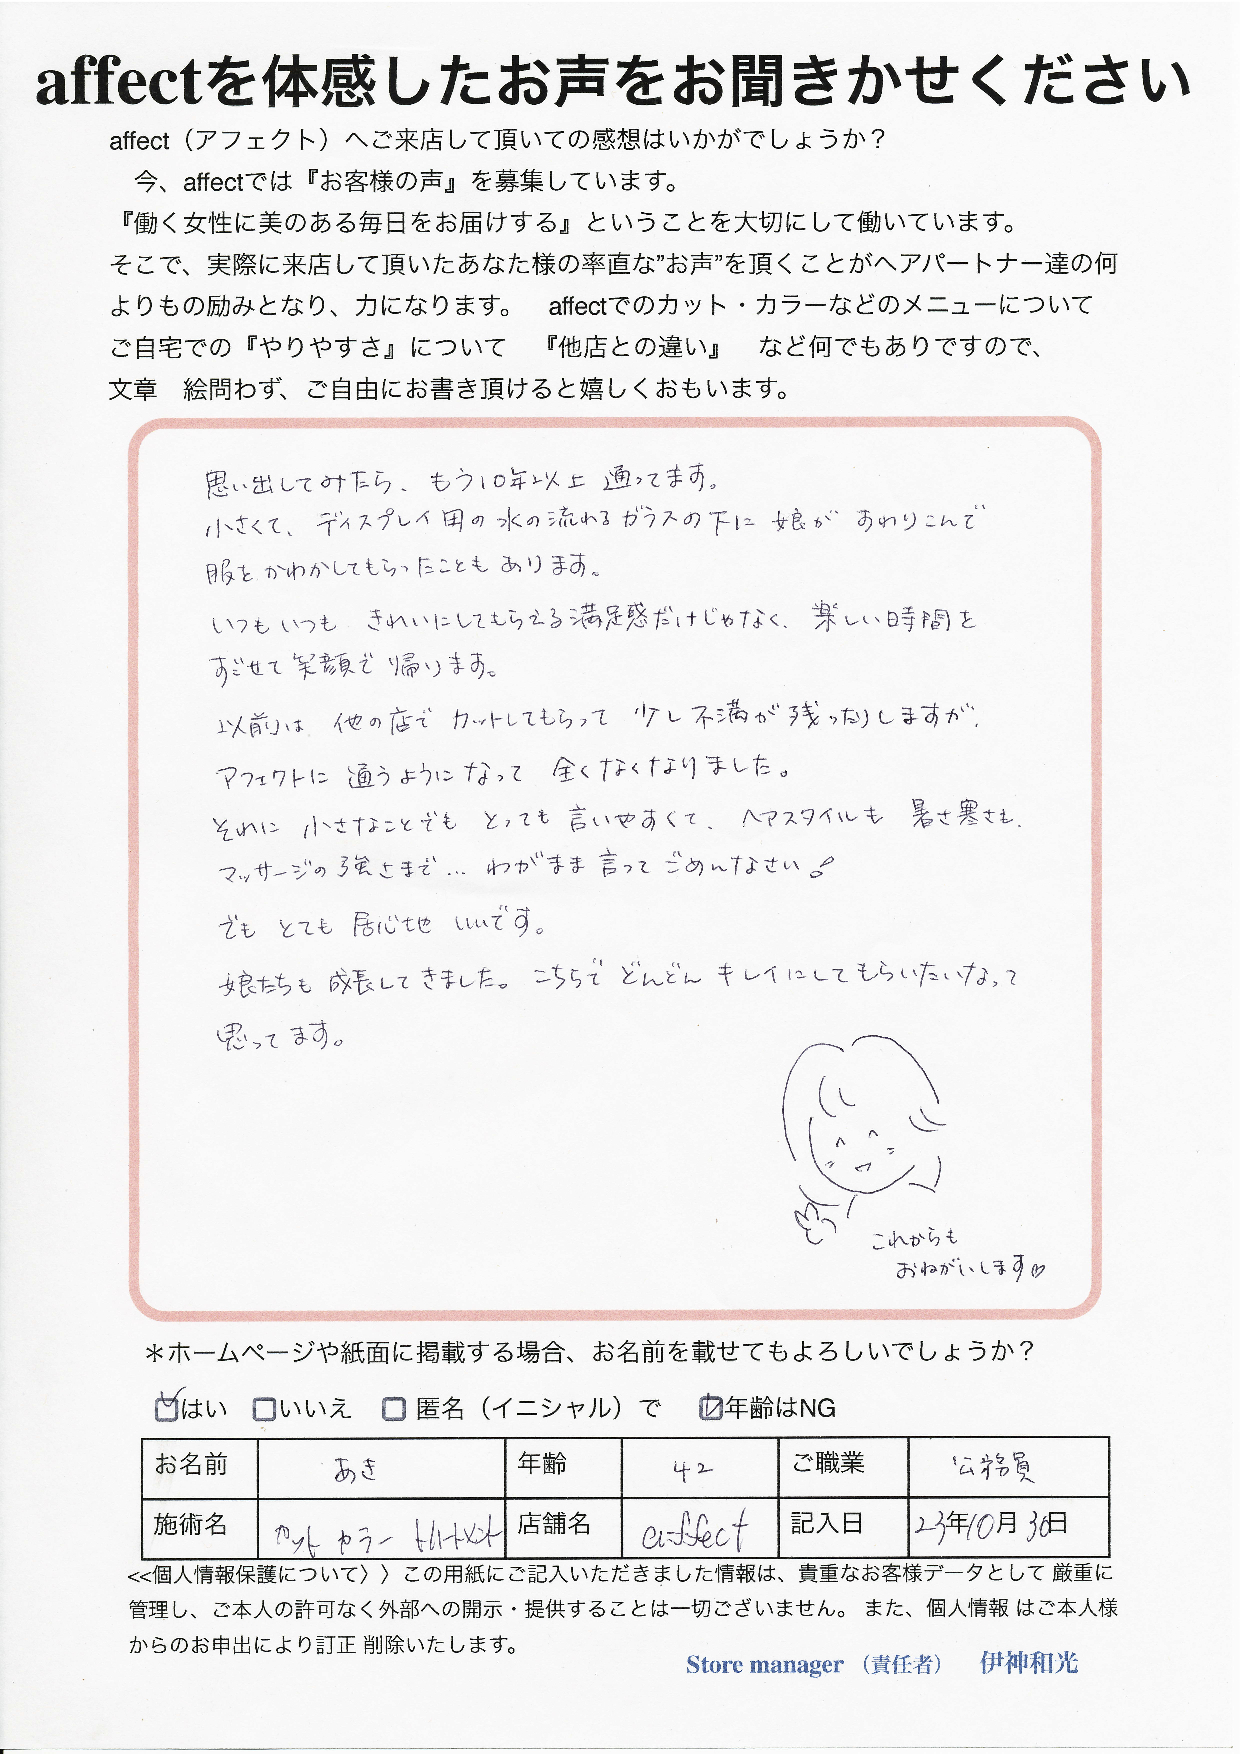 affectを体感したお声をお聞きかせください
affect（アフェクト）へご来店して頂いての感想はいかがでしょうか？
今、affectでは『お客様の声』を募集しています。
『働く女性に美のある毎日をお届けする』ということを大切にして働いています。
そこで、実際に来店して頂いたあなた様の率直な”お声”を頂くことがヘアパートナー達の何
よりもの励みとなり、力になります。　affectでのカット・カラーなどのメニューについて
ご自宅での『やりやすさ』について　『他店との違い』　など何でもありですので、
文章　絵問わず、ご自由にお書き頂けると嬉しくおもいます。
思い出してみたら、もう10年以上 通ってます。
小さくて、ディスプレイ用の水の流れるガラスの下に 娘が すわりこんで
服を かわかしてもらったことも あります。
いつも いつも きれいにしてもらえる満足感だけじゃなく、楽しい時間を
すごせて笑顔で 帰ります。
以前は 他の店で カットしてもらって 少し不満が残ったりしますが、
アフェクトに 通うようになって 全くなくなりました。
それに 小さなことでも とっても 言いやすくて、ヘアスタイルも 暑さ寒さも、
マッサージの強さまで… わがまま 言って ごめんなさい!
でも とても 居心地 いいです。
娘たちも 成長してきました。こちらで どんどん キレイにしてもらいたいなって
思ってます。
これからも
おねがいします♡
＊ホームページや紙面に掲載する場合、お名前を載せてもよろしいでしょうか？
☑はい　□いいえ　□ 匿名（イニシャル）で　☑年齢はNG
お名前 あき 年齢 42 ご職業 公務員
施術名 カット カラー トリートメント 店舗名 affect 記入日 23年10月30日
<<個人情報保護について〉〉この用紙にご記入いただきました情報は、貴重なお客様データとして 厳重に
管理し、ご本人の許可なく外部への開示・提供することは一切ございません。 また、個人情報 はご本人様
からのお申出により訂正 削除いたします。
Store manager （責任者）　伊神和光